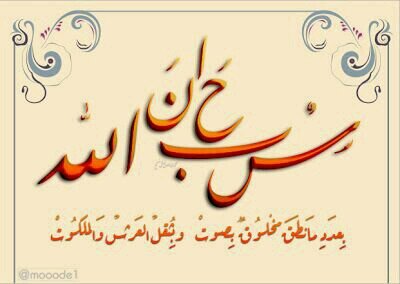 سُبْحَانَ اللّٰه
بِعَدَدِ مَا نَطَقَ مَخْلُوقٌ بِصَوتْ وَبِثُقلْ العَرشْ وَالمَلَكُوتْ
@mooode1